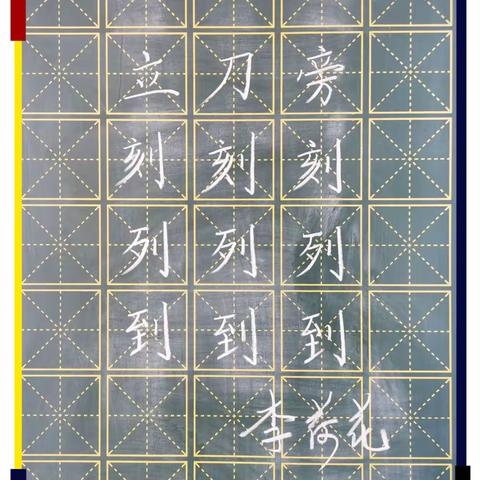 立刀旁
刻刻刻
列列列
到到到
李荷花